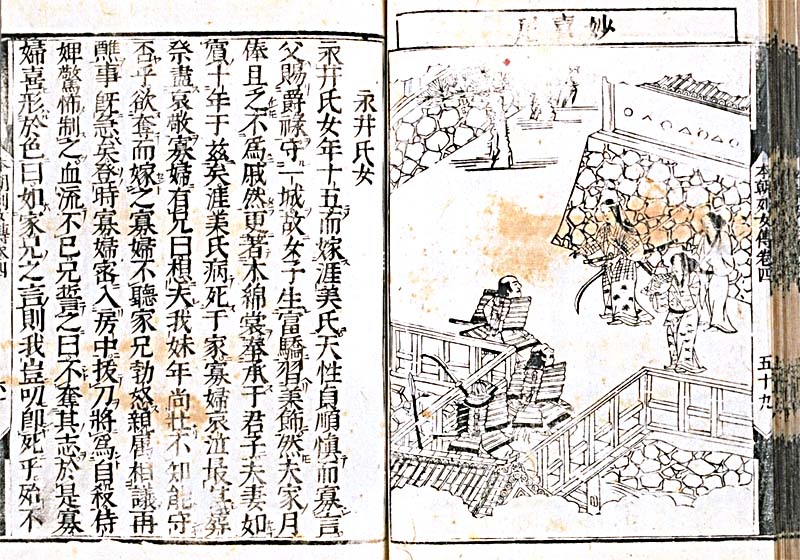 妙喜尼
本朝列女傳卷四
五十九
永井氏女
永井氏女年十五而嫁涯美氏天性貞順慎而寡言
父賜爵祿守一城故女子生富驕習美飾然夫家月
俸且乏不為戚然更著木綿裳奉承于君子夫妻如
賓十年于茲矣涯美氏病死于家寡婦哀泣最葬
祭盡哀敬寡婦有兄曰想夫我妹年尚壯不知能守
否乎欲奪而嫁之寡婦不聽家兄勃怒親屬相議再
醮事既志矣登時寡婦密入房中拔刀將為自殺侍
婢驚怖制之血流不已兄誓之曰不奪其志於是寡
婦喜形於色曰如家兄之言則我豈叨即死乎殆不